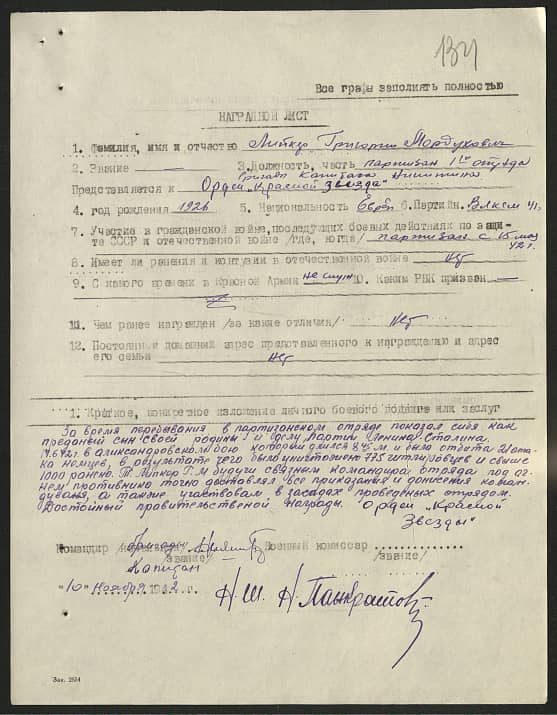 134
Все графы заполнять полностью
НАГРАДНОЙ ЛИСТ
1. Фамилия, имя и отчество Липкир Григорий Мордухович
2. Звание — 3. Должность, часть партизан 1го отряда
бригады Капитана Никитина
Представляется к Орден „Красной Звезда"
4. год рождения 1926 5. Национальность Еврей 6. Партийн. Влксм 41г.
7. Участие в гражданской войне, последующих боевых действиях по защи-
те СССР и отечественной войне /где, когда/ партизан с 15 мая
42 г.
8. Имеет ли ранения и контузии в отечественной войне нет
9. С какого времени в Красной Армии не служ 10. Каким РВК призван —
11. Чем ранее награжден /за какие отличия/ Нет
12. Постоянный домашний адрес представленного к награждению и адрес
его семьи Нет
1. Краткое, конкретное изложение личного боевого подвига или заслуг
За время перебывания в партизанском отряде показал себя как
преданый сын своей родины и делу Партии Ленина-Сталина.
в Александровском бою который длился и было отбита 21 ата-
ка немцев, в результате чего было уничтожено 775 гитлеровцев и свыше
1000 ранено. Т. Липкир Г.М будучи связным командира отряда под ог-
нем противнико точно доставлял все приказания и донесения коман-
дования, а также участвовал в засадах проведеных отрядом.
Достойный правительственой Награды. „Орден „Красной
Звезды"
Командир бригады Никитин Военный комиссар
Капитан /звание/ /звание/
"10" Ноября 194 2 г.
Н.Ш. Н. Панкратов
Зак. 2924